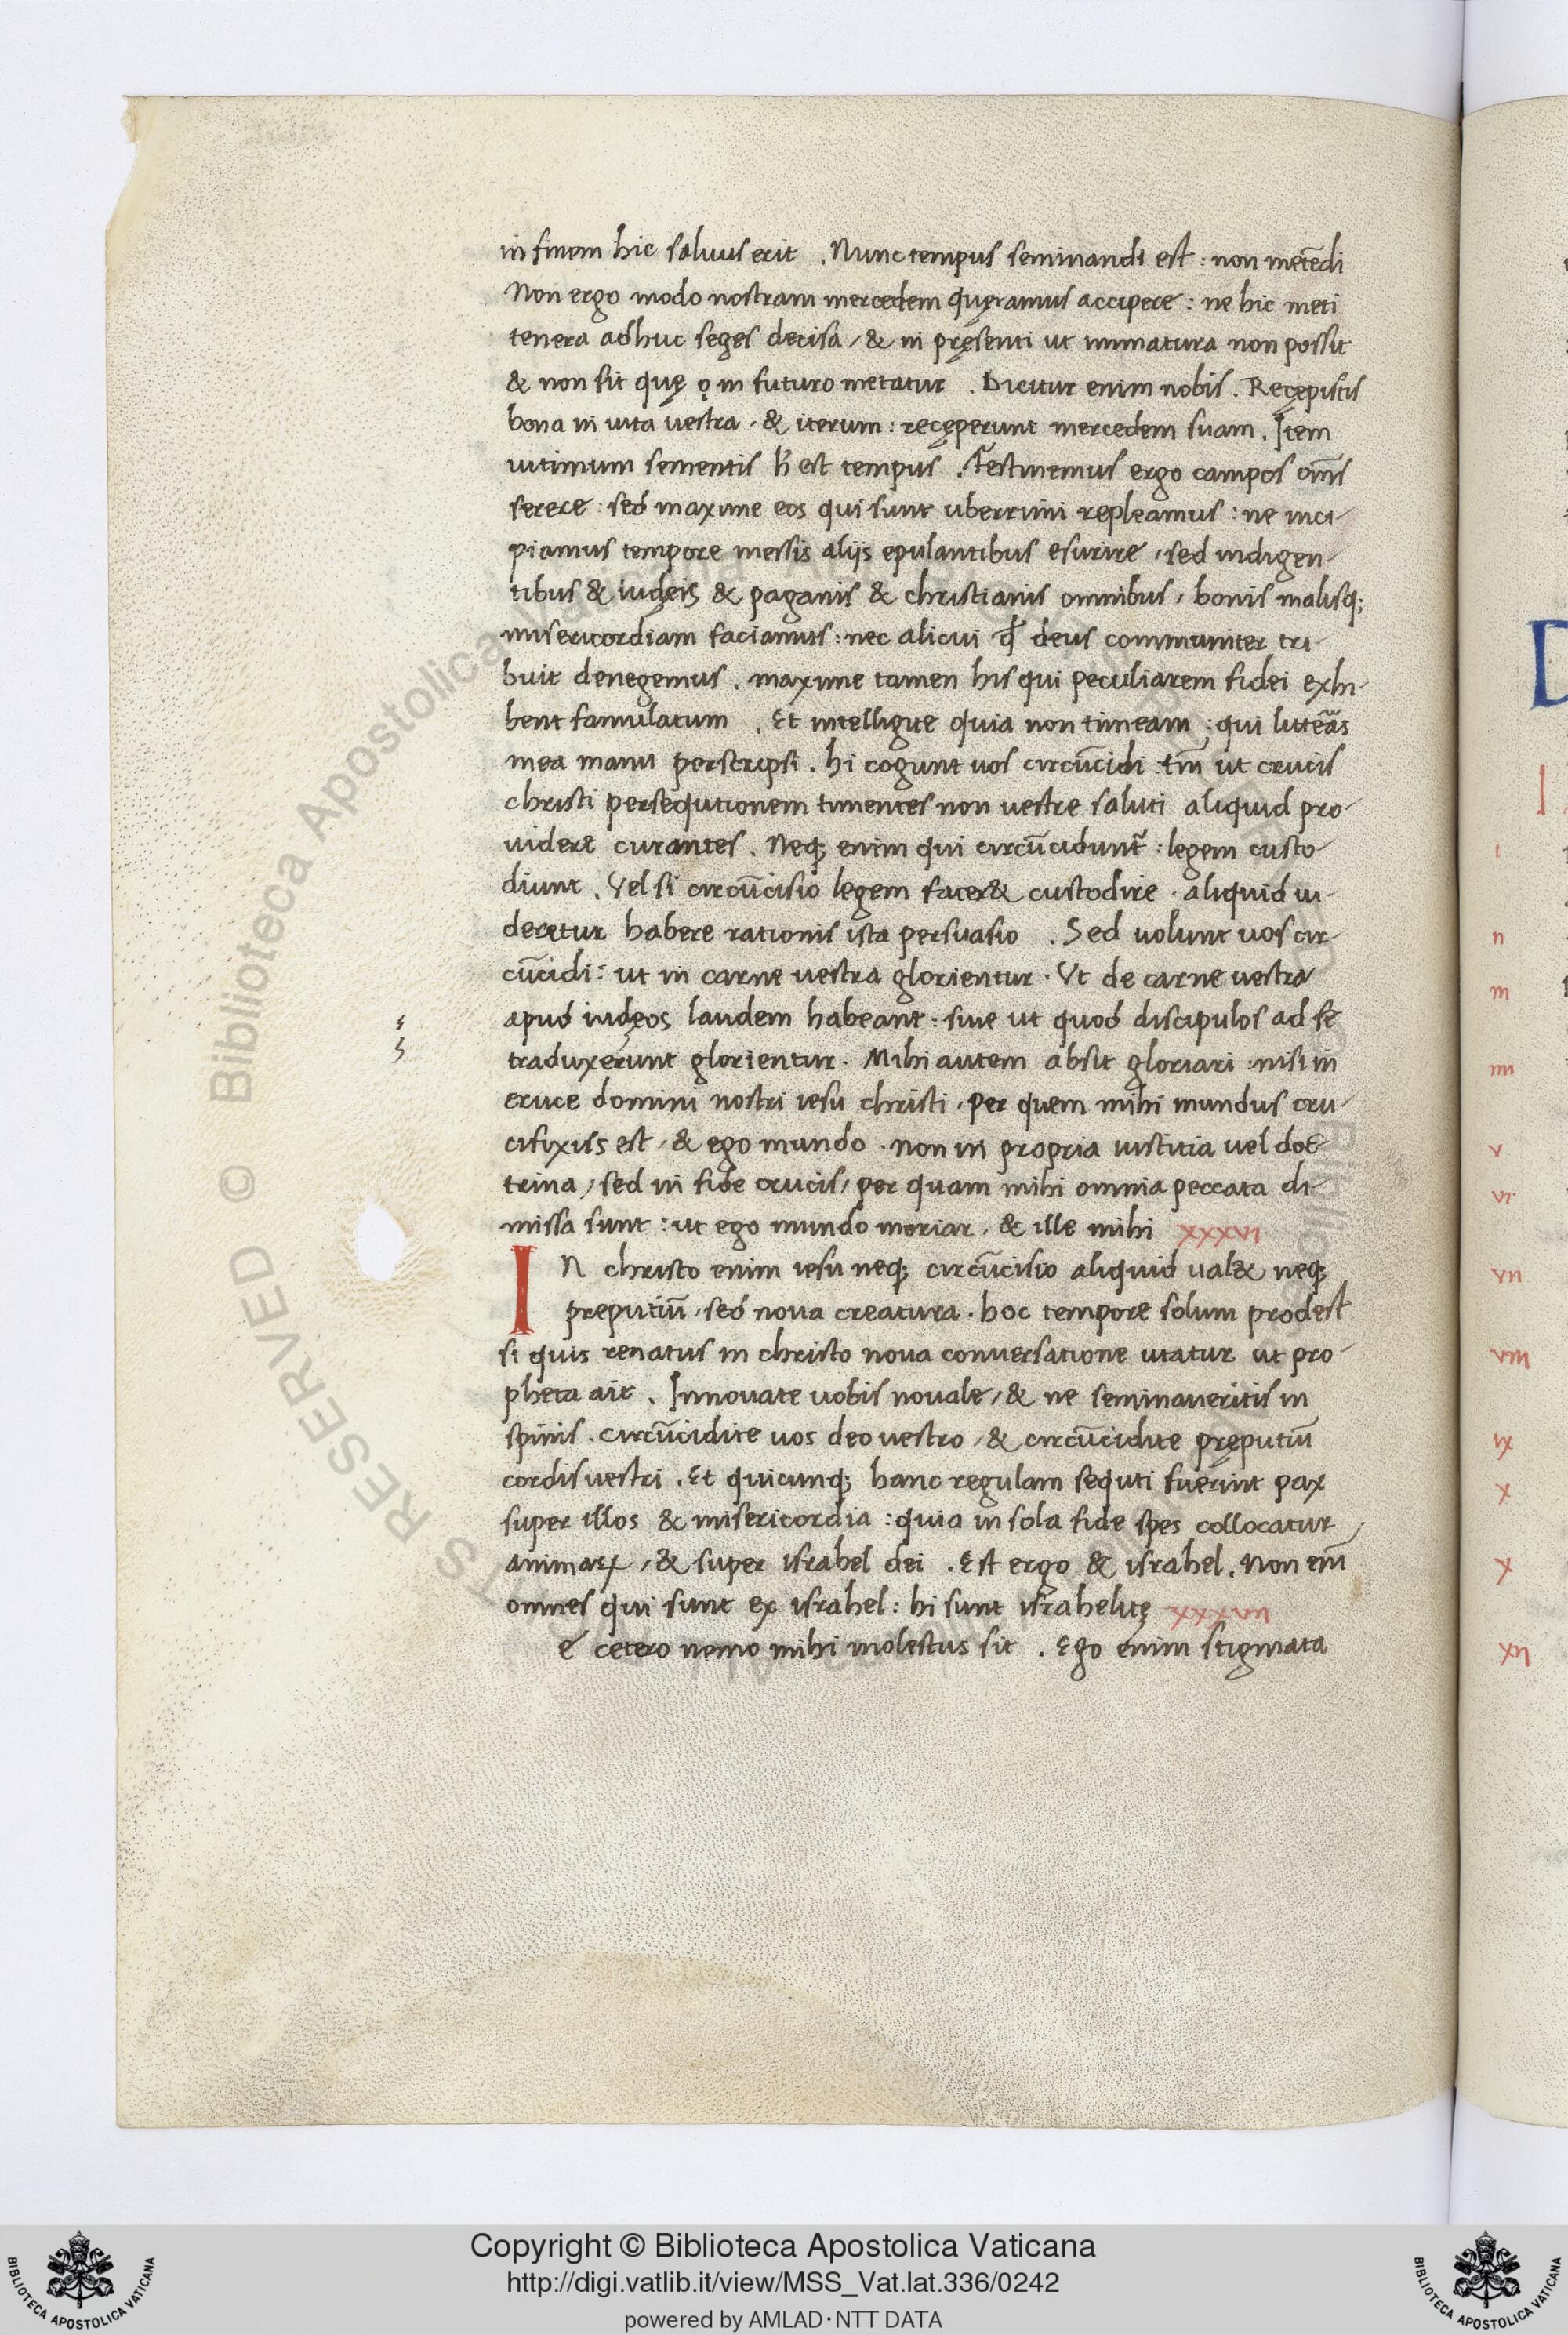 in finem hic saluus erit . Nunc tempus seminandi est : non metēdi
Non ergo modo nostram mercedem quęramus accipere : ne hic meti
tenera adhuc seges decisa / & in pręsenti ut immatura non possit
& non sit quę in futuro metatur . Dicitur enim nobis . Recępistis
bona in uita uestra . & iterum : recęperunt mercedem suam . Item
uitimum sementis est tempus . Festinemus ergo campos om̄s
serere : sed maxime eos qui sunt uberrimi repleamus : ne inci-
piamus tempore messis alijs epulantibus esurire / sed indigen-
tibus & iudęis & paganis & christianis omnibus / bonis malisq;
misericordiam faciamus : nec alicui deus communiter tri-
buit denegemus . maxime tamen his qui peculiarem fidei exhi-
bent famulatum . Et intelligite quia non timeam : qui
mea manu perscripsi . hi cogunt uos circūcidi : tm̄ ut crucis
christi persequtionem timentes non uestre saluti aliquid pro-
uidere curantes . Neq; enim qui circūcidunt᷑ : legem custo-
diunt . Vel si circūcisio legem facer& custodire . aliquid ui-
deretur habere rationis ista persuasio . Sed uolunt uos cir-
cūcidi : ut in carne uestra glorientur . Vt de carne uestra
apud iudęos laudem habeant : siue ut quod discipulos ad se
traduxerunt glorientur . Mihi autem absit gloriari : nisi in
cruce domini nostri iesu christi / per quem mihi mundus cru-
cifixus est / & ego mundo . non in propria iustitia uel doc-
trina / sed in fide crucis / per quam mihi omnia peccata di-
missa sunt : ut ego mundo moriar . & ille mihi xxxvi
IN christo enim iesu neq; circūcisio aliquid ual& neq;
preputiū / sed noua creatura . hoc tempore solum prodest
si quis renatus in christo noua conuersatione utatur ut pro-
pheta ait . Innouate uobis nouale / & ne seminaueritis in
spinis . circūcidite uos deo uestro / & circūcidite pręputiū
cordis uestri . Et quicunq; hanc regulam sequti fuerint pax
super illos & misericordia : quia in sola fide spes collocatur /
animaꝝ / & super israhel dei . Est ergo & israhel . Non eni᷑
omnes qui sunt ex israhel : hi sunt israhelitę xxxvii
e cetero nemo mihi molestus sit . Ego enim stigmata
D
I
i
n
m
iiii
v
vi
vii
viii
ix
x
x
xii
© Biblioteca Apostolica Vaticana
RESERVED
Copyright © Biblioteca Apostolica Vaticana
http://digi.vatlib.it/view/MSS_Vat.lat.336/0242
powered by AMLAD·NTT DATA
BIBLIOTECA APOSTOLICA VATICANA
BIBLIOTECA APOSTOLICA VATICANA